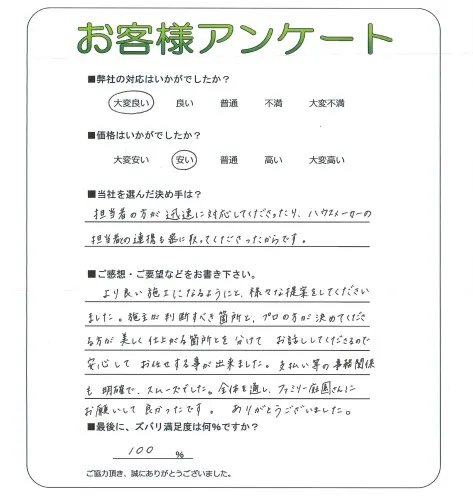 お客様アンケート
■弊社の対応はいかがでしたか？
大変良い 良い 普通 不満 大変不満
■価格はいかがでしたか？
大変安い 安い 普通 高い 大変高い
■当社を選んだ決め手は？
担当者の方が迅速に対応してくださったり、ハウスメーカーの
担当者の連携も密に取ってくださったからです。
■ご感想・ご要望などをお書き下さい。
より良い施工になるようにと、様々な提案をしてください
ました。施主が判断すべき箇所と、プロの方が決めてくださ
る方が美しく仕上がる箇所とを分けて お話ししてくださるので
安心して お任せする事が出来ました。支払い等の事務関係
も 明確で、スムーズでした。全体を通し、ファミリー庭園さんに
お願いして良かったです。 ありがとうございました。
■最後に、ズバリ満足度は何%ですか？
100 %
ご協力頂き、誠にありがとうございました。